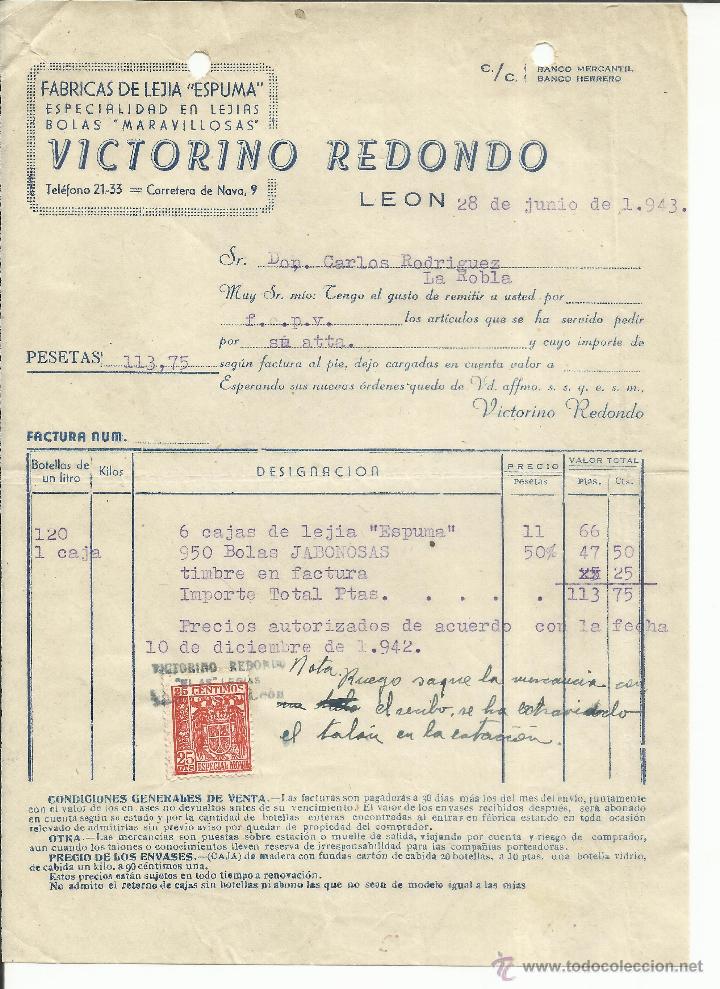 FABRICAS DE LEJIA "ESPUMA"
ESPECIALIDAD EN LEJIAS
BOLAS "MARAVILLOSAS"
VICTORINO REDONDO
Teléfono 21-33 = Carretera de Nava, 9
C./C. BANCO MERCANTIL
BANCO HERRERO
LEON 28 de junio de 1.943.
Sr. Don. Carlos Rodriguez
La Robla
Muy Sr. mío: Tengo el gusto de remitir a usted por
f. c. p.v. los artículos que se ha servido pedir
por su atta. y cuyo importe de
PESETAS 113,75 según factura al pie, dejo cargadas en cuenta valor a
Esperando sus nuevas órdenes quedo de Vd. affmo. s. s. q. e. s. m.,
Victorino Redondo
FACTURA NUM.
Botellas de un litro Kilos DESIGNACION PRECIO VALOR TOTAL
Pesetas Ptas. Cts.
120 6 cajas de lejia "Espuma" 11 66
1 caja 950 Bolas JABONOSAS 50% 47 50
timbre en factura 25
Importe Total Ptas. . . . . . 113 75
Precios autorizados de acuerdo con la fecha
10 de diciembre de 1.942.
VICTORINO REDONDO
LEON
Nota. Ruego saque la mercancia con
el recibo, se ha extraviado
el talón en la estación.
25 CENTIMOS
25 CTS
ESPECIAL MOVIL
CONDICIONES GENERALES DE VENTA.—Las facturas son pagaderas a 30 días más los del mes del envío, juntamente
con el valor de los envases no devueltos antes de su vencimiento. El valor de los envases recibidos después, será abonado
en cuenta según su estado y por la cantidad de botellas enteras encontradas al entrar en fábrica estando en toda ocasión
relevado de admitirlas sin previo aviso por quedar de propiedad del comprador.
OTRA.—Las mercancías son puestas sobre estación o muelle de salida, viajando por cuenta y riesgo de comprador,
aun cuando los talones o conocimientos lleven reserva de irresponsabilidad para las compañías porteadoras.
PRECIO DE LOS ENVASES.—(CAJA) de madera con fundas cartón de cabida 20 botellas, a 10 ptas. una botella vidrio,
de cabida un kilo, a 90 céntimos una.
Estos precios están sujetos en todo tiempo a renovación.
No admito el retorno de cajas sin botellas ni abono las que no sean de modelo igual a las mías
www.todocoleccion.net